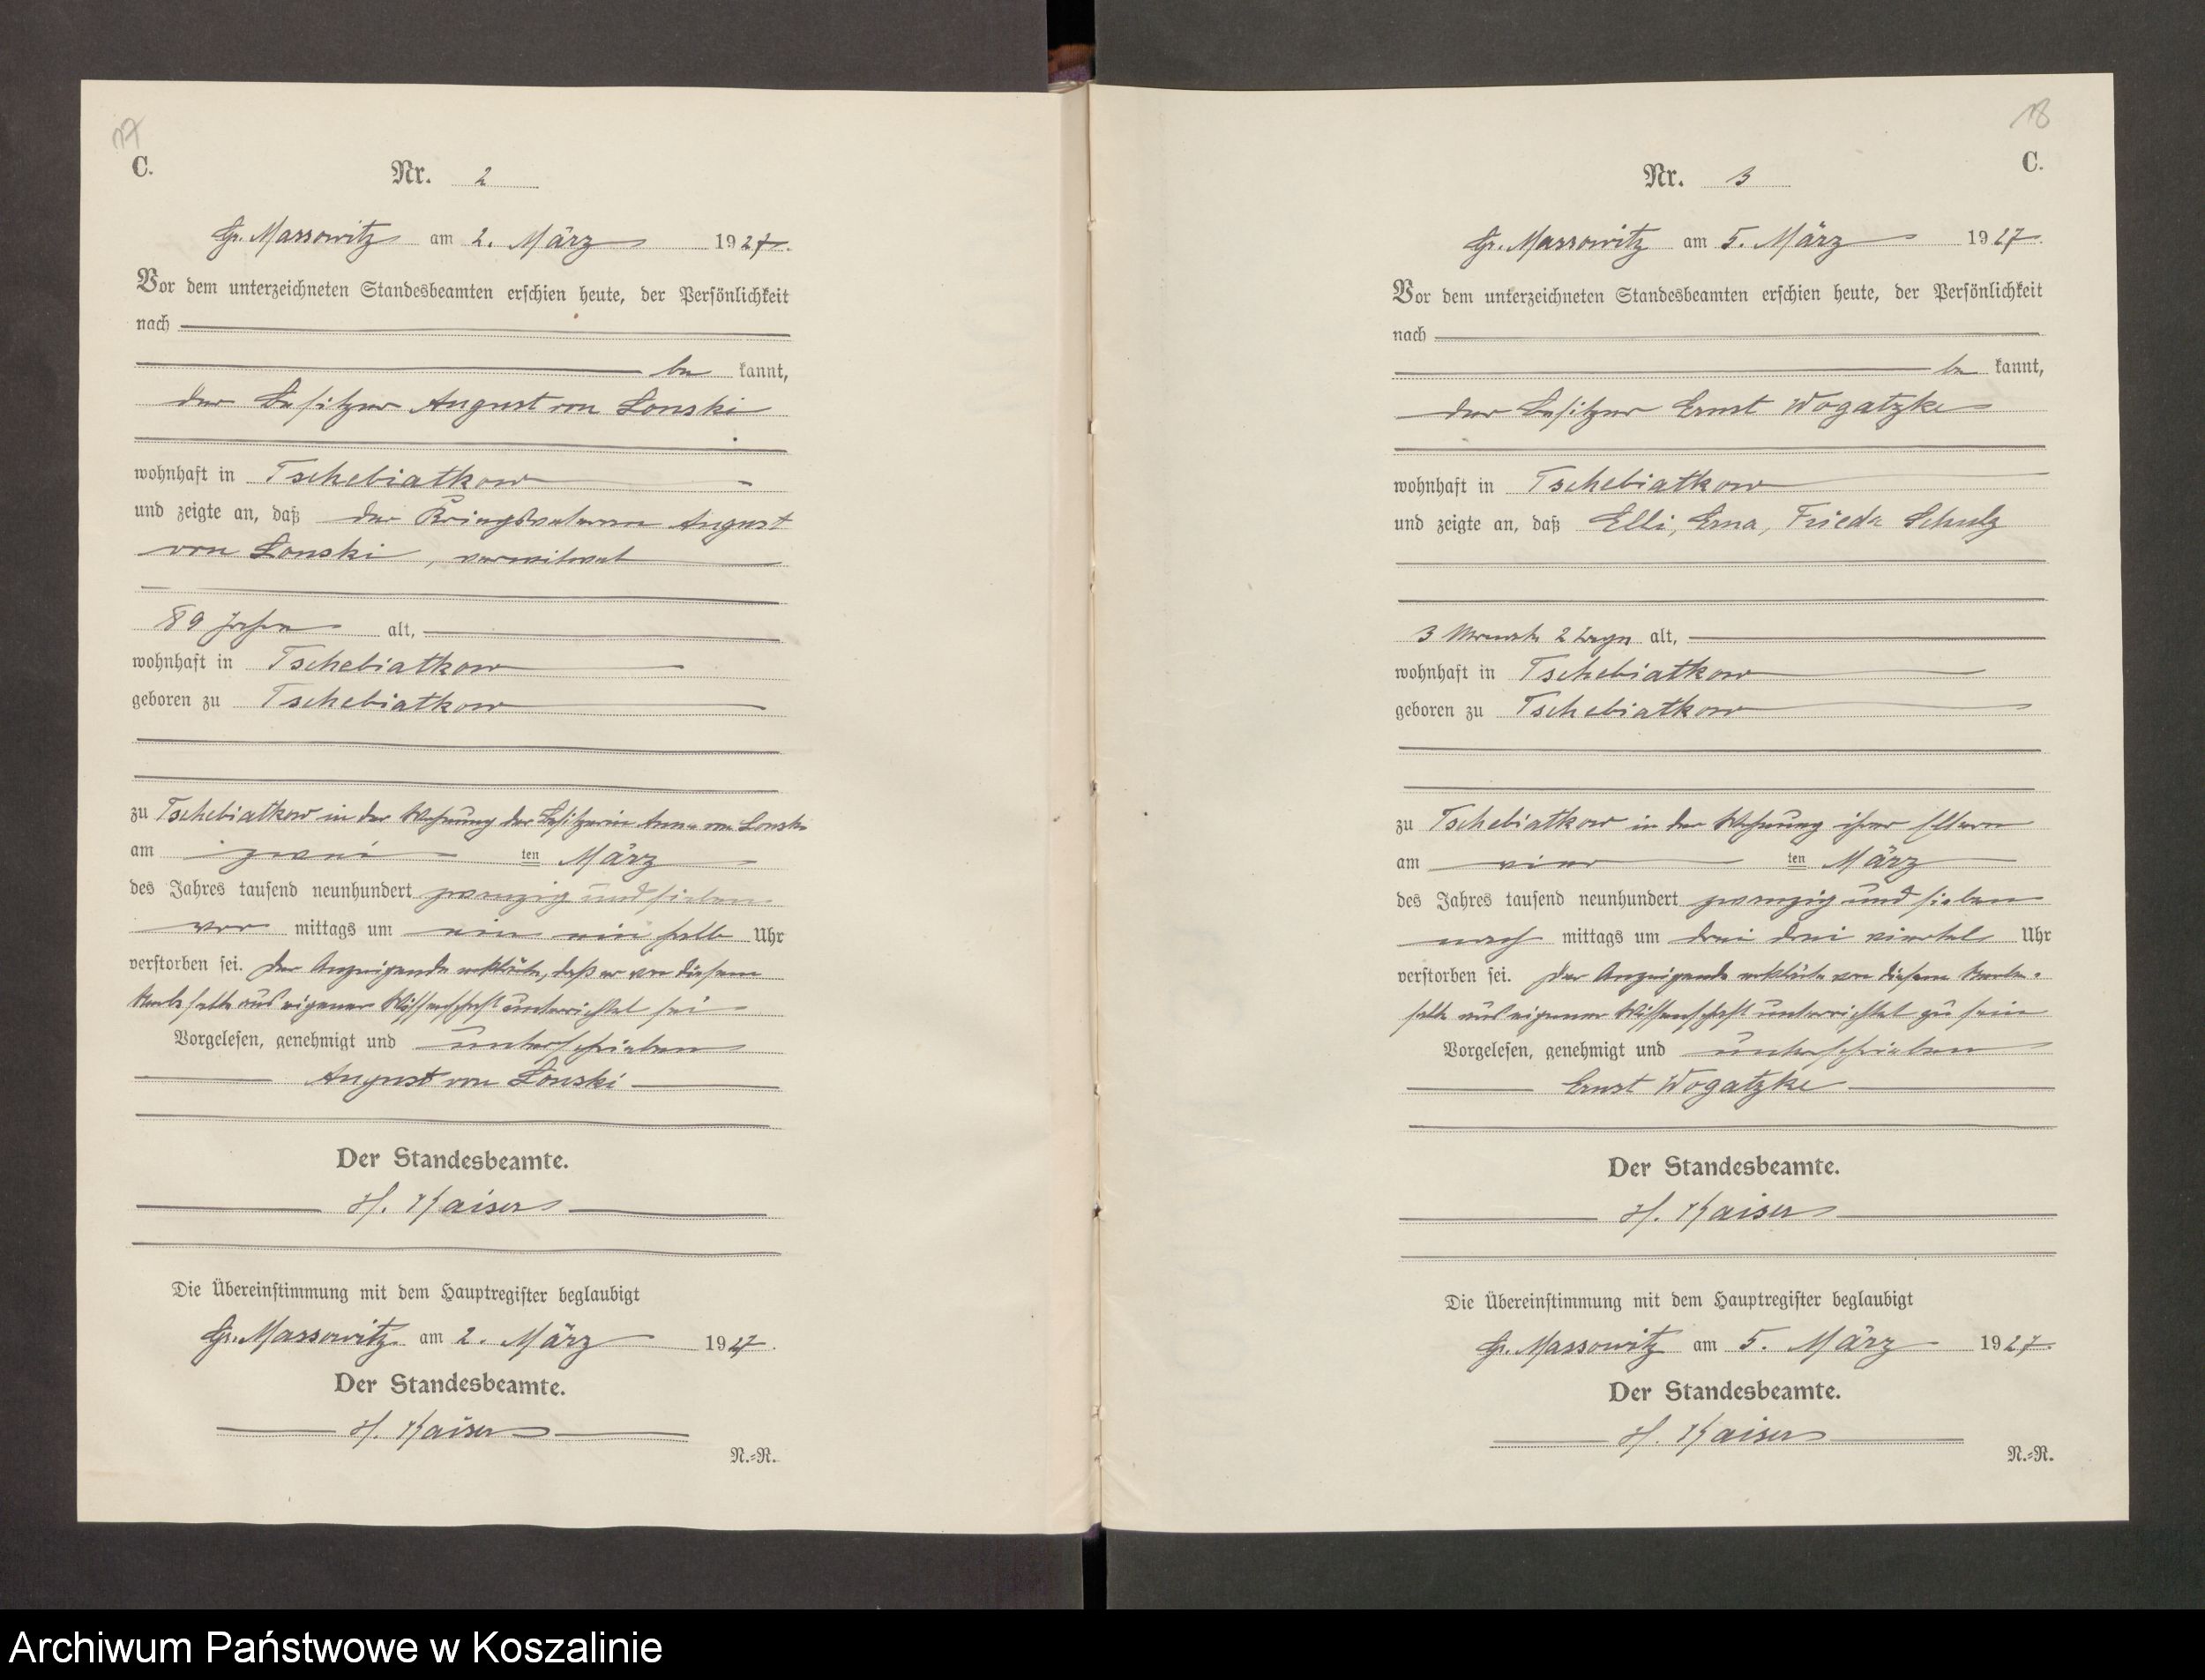 17
C.
Nr. 2
Gr. Massowitz am 2. März 1927.
Vor dem unterzeichneten Standesbeamten erschien heute, der Persönlichkeit
nach
be kannt,
der Besitzer August von Lonski
wohnhaft in Tschebiatkow
und zeigte an, daß der Kriegsveteran August
von Lonski, verwitwet
89 Jahre alt,
wohnhaft in Tschebiatkow
geboren zu Tschebiatkow
zu Tschebiatkow in der Wohnung der Besitzerin Anna von Lonski
am zwei ten März
des Jahres tausend neunhundert zwanzig und sieben
vor mittags um ein halb Uhr
verstorben sei. Der Anzeigende erklärte, daß er von diesem
Sterbefalle aus eigener Wissenschaft unterrichtet sei
Vorgelesen, genehmigt und unterschrieben
August von Lonski
Der Standesbeamte.
H. Kaiser
Die Übereinstimmung mit dem Hauptregister beglaubigt
Gr. Massowitz am 2. März 1927.
Der Standesbeamte.
H. Kaiser
N.=R.
18
C.
Nr. 3
Gr. Massowitz am 5. März 1927.
Vor dem unterzeichneten Standesbeamten erschien heute, der Persönlichkeit
nach
be kannt,
der Besitzer Ernst Wogatzke
wohnhaft in Tschebiatkow
und zeigte an, daß Elli, Erna, Frieda Schulz
3 Monate 2 Tage alt,
wohnhaft in Tschebiatkow
geboren zu Tschebiatkow
zu Tschebiatkow in der Wohnung ihrer Eltern
am vier ten März
des Jahres tausend neunhundert zwanzig und sieben
nach mittags um drei drei viertel Uhr
verstorben sei. Der Anzeigende erklärte von diesem Sterbe-
falle aus eigener Wissenschaft unterrichtet zu sein
Vorgelesen, genehmigt und unterschrieben
Ernst Wogatzke
Der Standesbeamte.
H. Kaiser
Die Übereinstimmung mit dem Hauptregister beglaubigt
Gr. Massowitz am 5. März 1927.
Der Standesbeamte.
H. Kaiser
N.=R.
Archiwum Państwowe w Koszalinie